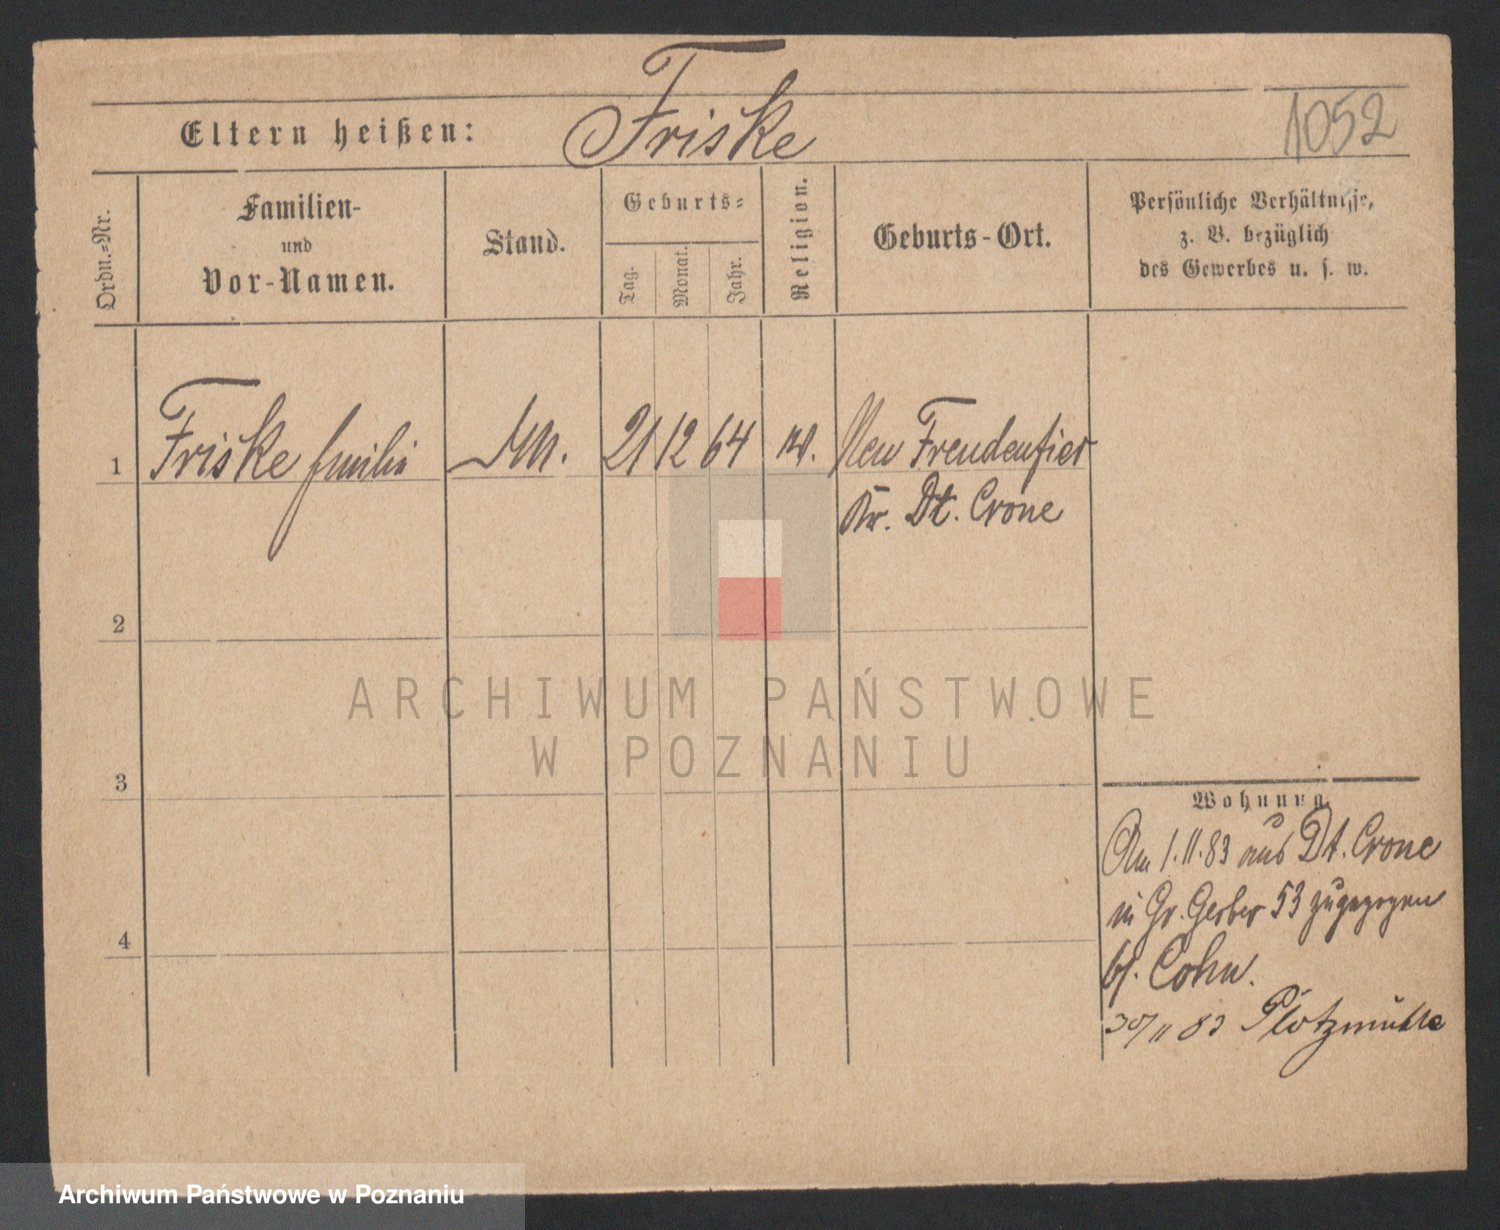 Friske
Eltern heißen:
1052
Ordn.-Nr.
Familien-
und
Vor-Namen.
Stand.
Geburts-
Tag.
Monat.
Jahr.
Religion.
Geburts-Ort.
Persönliche Verhältnisse,
z. B. bezüglich
des Gewerbes u. s. w.
1 Friske Emilie 21 12 64 Neu Freudenfier
Kr. Dt. Crone
2
3
4
Wohnung.
Am 1.11.83 aus Dt. Crone
in Gr. Gerber 53 zugezogen
bf. Cohn.
30/11 83 Plotzmühle
ARCHIWUM PAŃSTWOWE
W POZNANIU
Archiwum Państwowe w Poznaniu